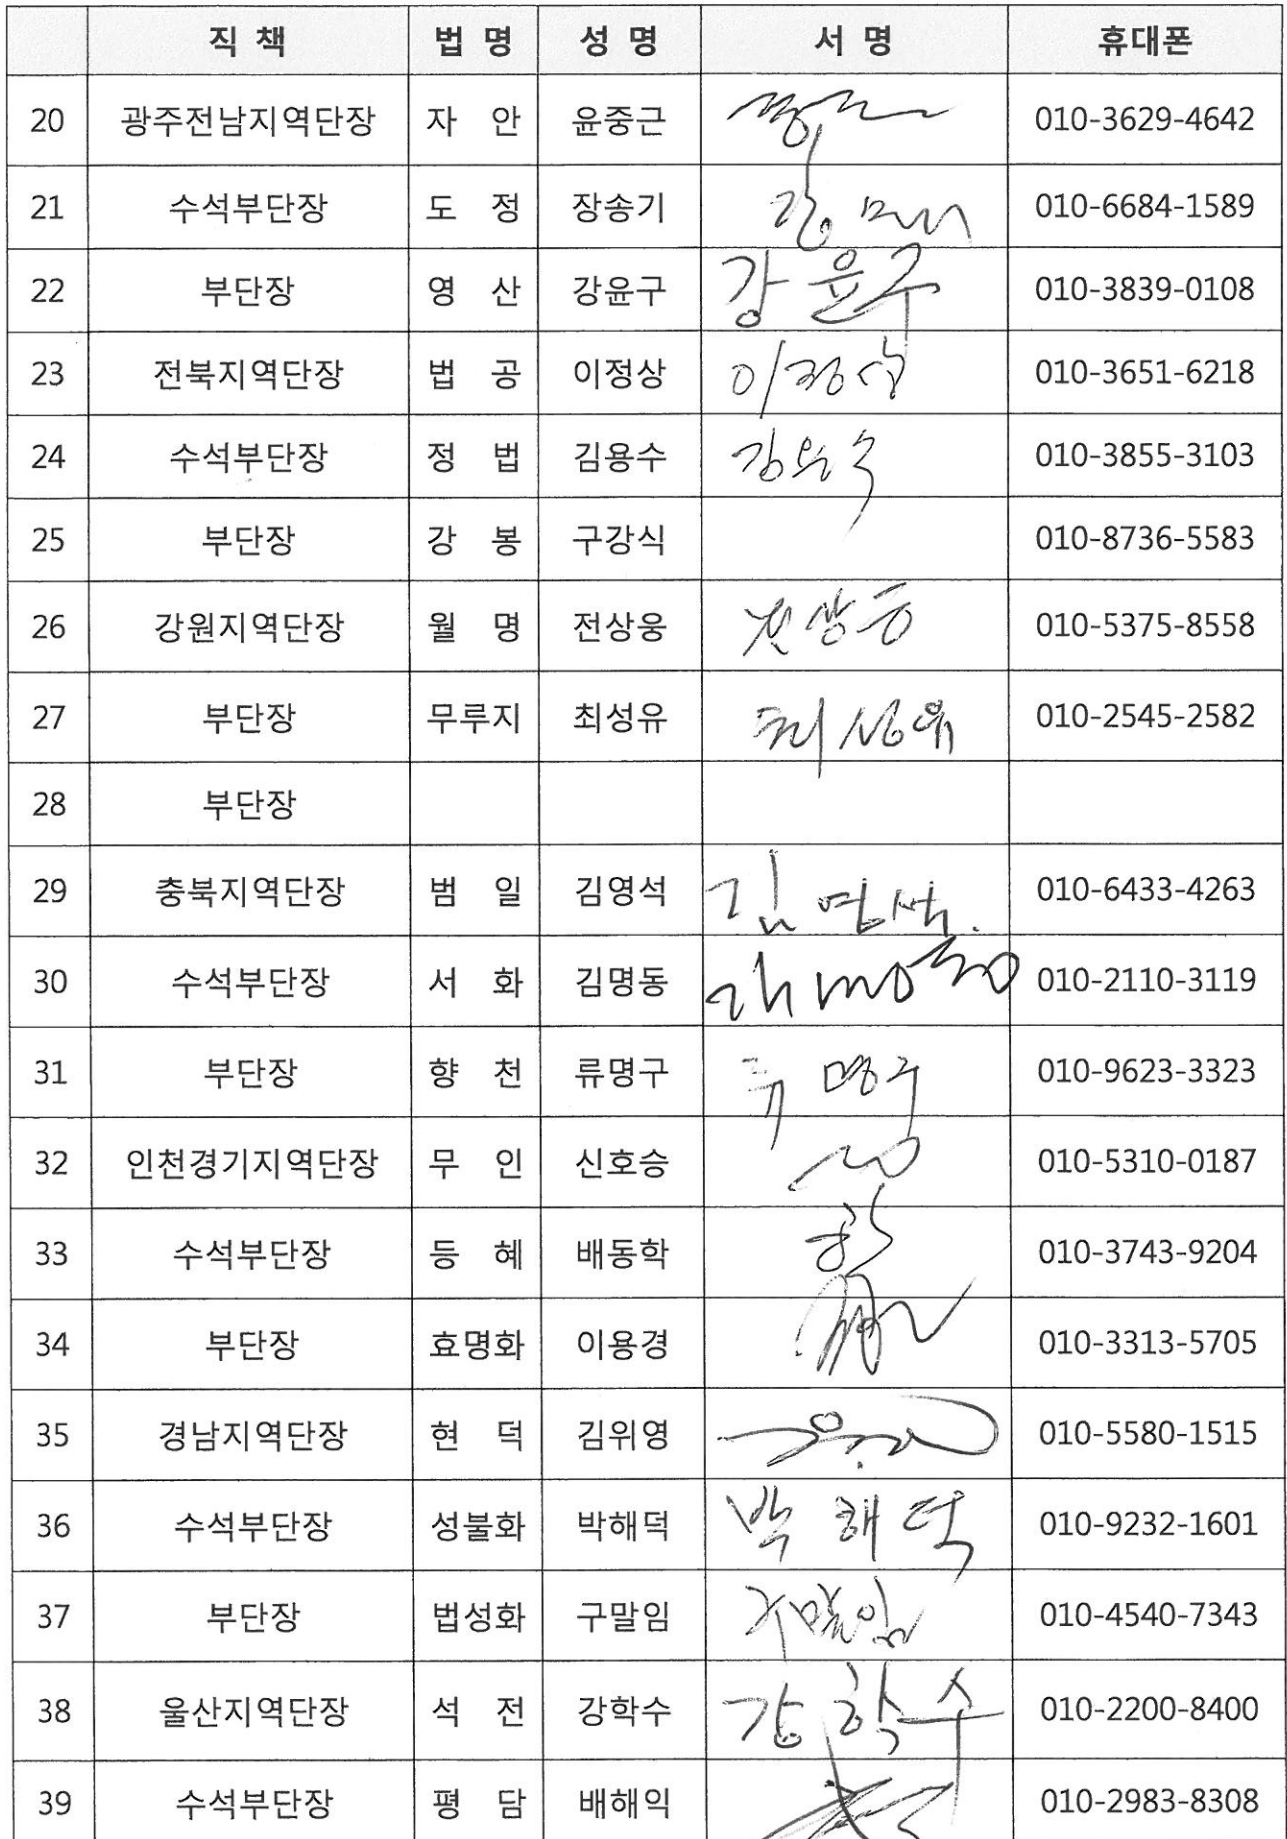 직 책 법 명 성 명 서 명 휴대폰
20 광주전남지역단장 자 안 윤중근 010-3629-4642
21 수석부단장 도 정 장송기 010-6684-1589
22 부단장 영 산 강윤구 강윤구 010-3839-0108
23 전북지역단장 법 공 이정상 이정상 010-3651-6218
24 수석부단장 정 법 김용수 김용수 010-3855-3103
25 부단장 강 봉 구강식 010-8736-5583
26 강원지역단장 월 명 전상웅 전상웅 010-5375-8558
27 부단장 무루지 최성유 최성유 010-2545-2582
28 부단장
29 충북지역단장 범 일 김영석 김영석 010-6433-4263
30 수석부단장 서 화 김명동 010-2110-3119
31 부단장 향 천 류명구 류명구 010-9623-3323
32 인천경기지역단장 무 인 신호승 010-5310-0187
33 수석부단장 등 혜 배동학 010-3743-9204
34 부단장 효명화 이용경 010-3313-5705
35 경남지역단장 현 덕 김위영 010-5580-1515
36 수석부단장 성불화 박해덕 박해덕 010-9232-1601
37 부단장 법성화 구말임 구말임 010-4540-7343
38 울산지역단장 석 전 강학수 강학수 010-2200-8400
39 수석부단장 평 담 배해익 010-2983-8308